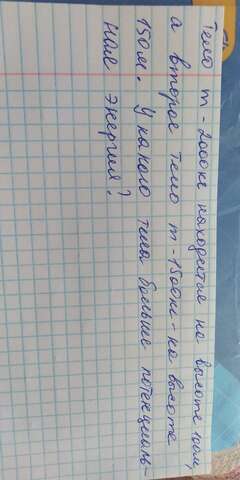 Тело m - 2000кг находится на высоте
а второе тело m - 1500кг - на высоте
150м. У какого тела больше потенциаль-
ная энергия?